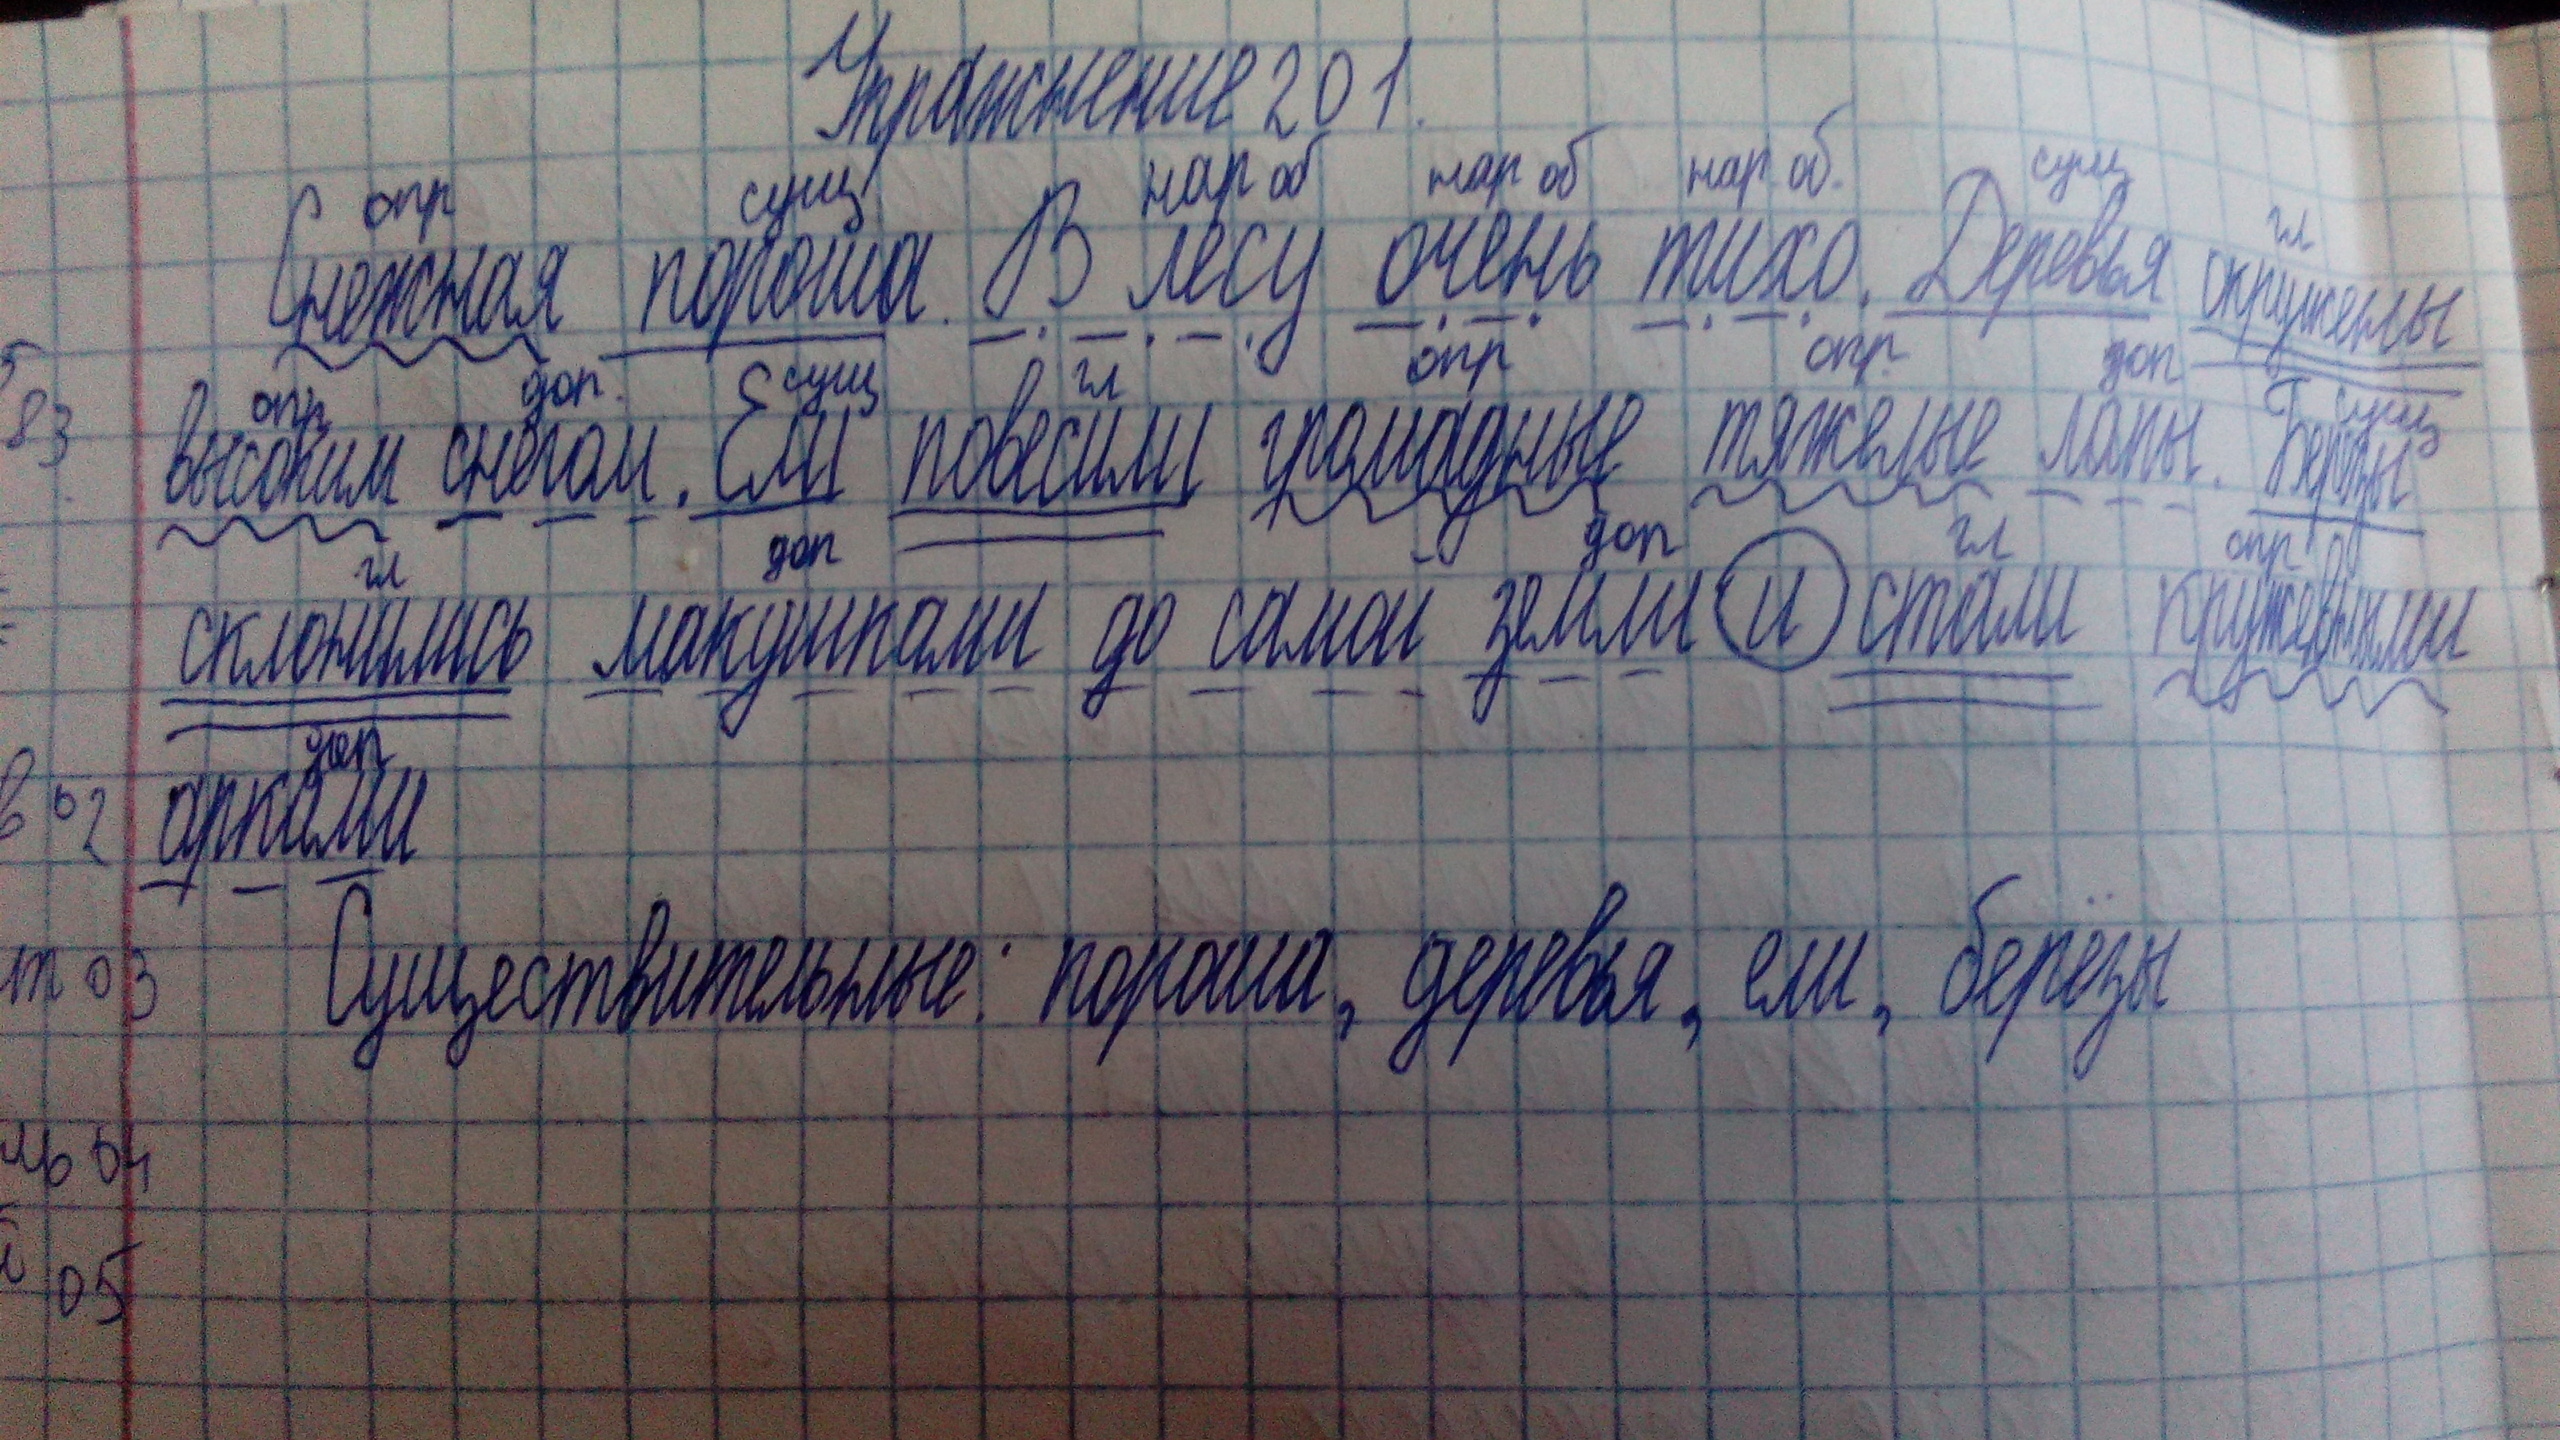 Упражнение 201.
опр сущ нар об нар об нар. об. сущ гл
Снежная пороша. В лесу очень тихо. Деревья окружены
опр доп. сущ гл опр опр. доп сущ
высоким снегом. Ели повесили громадные тяжелые лапы. Берёзы
гл доп доп гл опр
склонились макушками до самой земли и стали кружевными
доп
арками
Существительные: пороша, деревья, ели, берёзы
83
в 02
т 03
ль 04
05